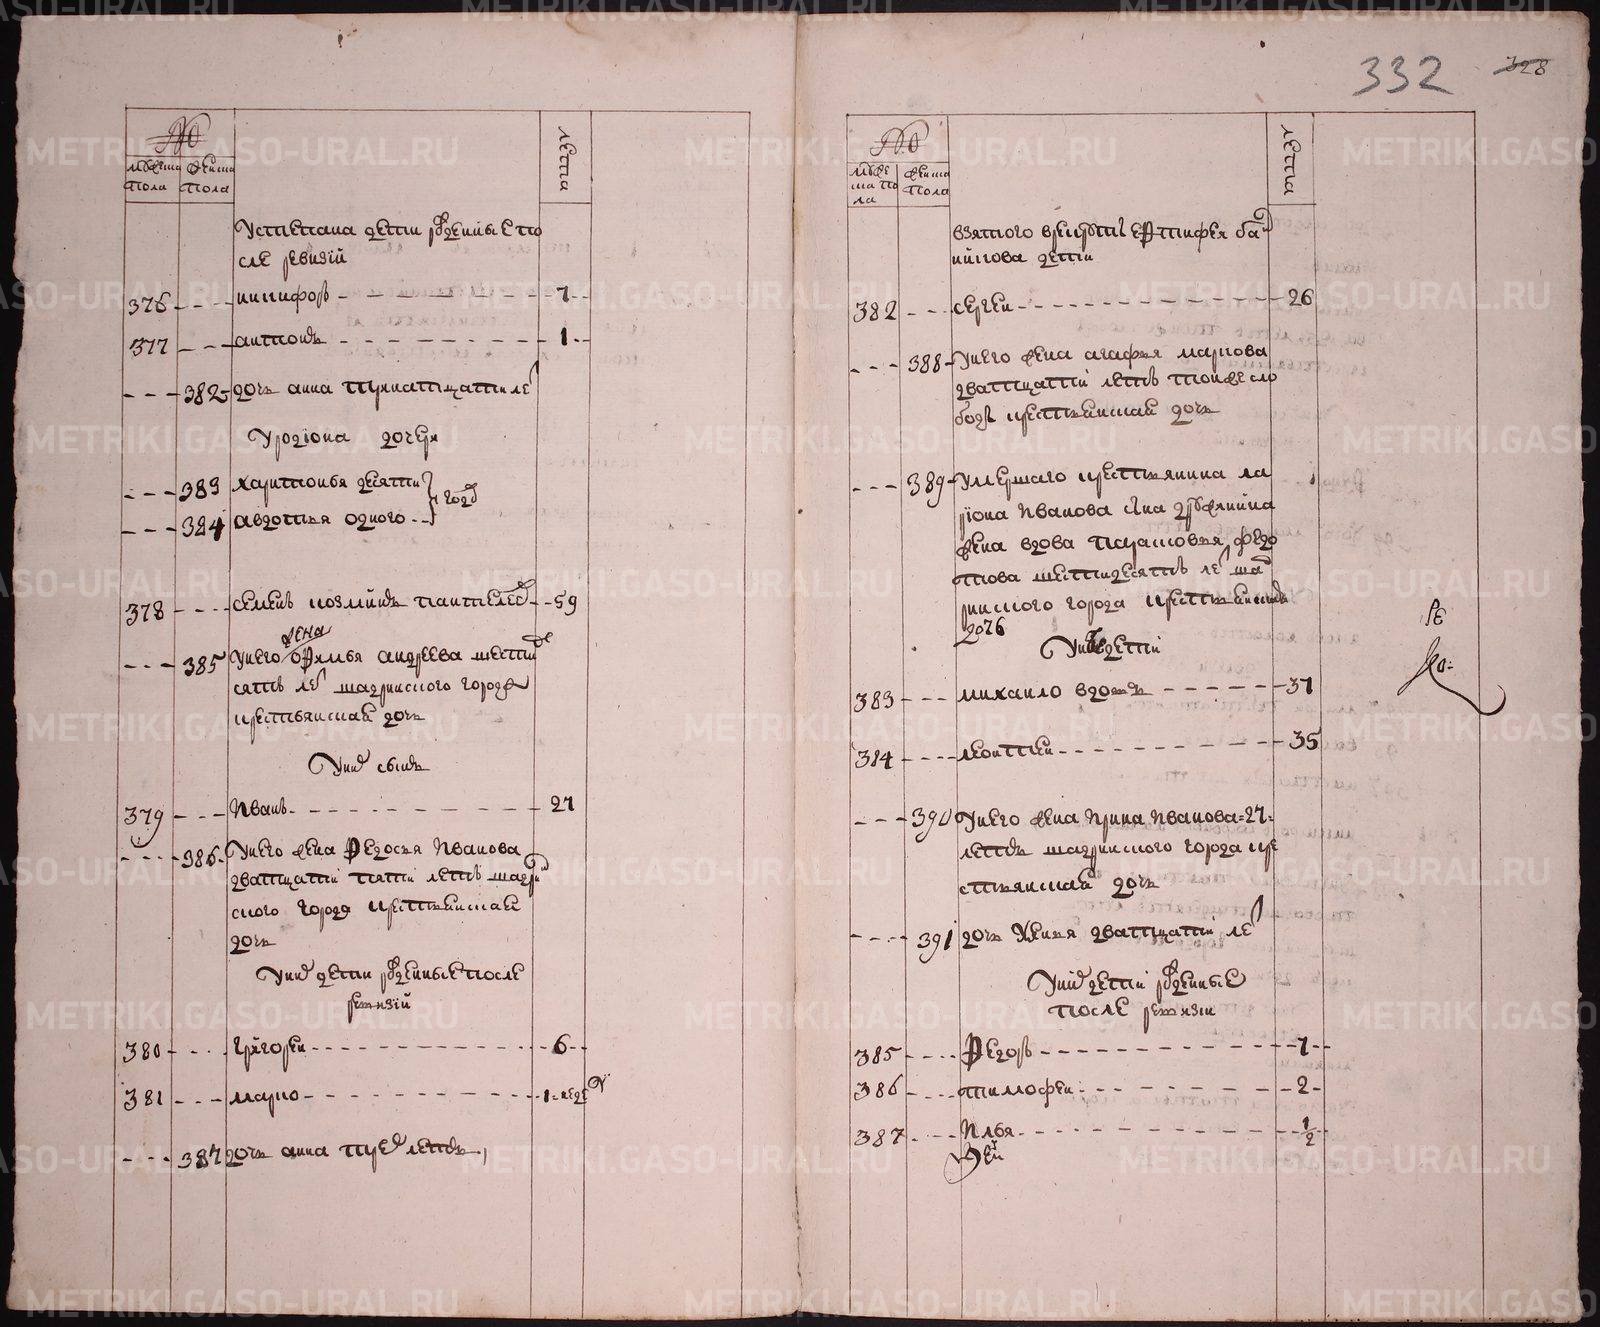 332
328
№
мужеска пола
женска пола
лета
устепана дети рожденные по
сле ревизiй
376 никифоръ 7
377 антонъ 1
382 дочь анна тринатцати лет
уродiона дочери
383 харитонья десяти
384 авдотья одного году
378 семенъ козминъ пантелеев 59
385 унего жена офимья андреева шестиде
сятъ лет шадринского города
крестьянская дочь
уних сынъ
379 Иванъ 27
386 унего жена Федосья Иванова
дватцати пяти летъ шадрин
ского города крестьянская
дочь
уних дети рожденные после
ревизiй
380 григорей 6
381 марко 1 недел
387 дочь анна трех летъ
№
мужеска пола
женска пола
лета
взятого врекруты
дети
382 сергей 26
388 унего жена агафья маркова
дватцати летъ
крестьянская дочь
389 умершаго крестьянина ла
рiона Иванова
жена вдова федо
това шестидесятъ лет шад
ринского города крестьянская
дочь
уних дети
383 михаило вдовъ 37
384 леонтей 35
390 унего жена Ирина Иванова 27
летъ шадринского города кре
стьянская дочь
391 дочь дватцати лет
уних дети рожденные
после ревизiи
385 Федоръ 7
386 тимофей 2
387 Илья 1/2